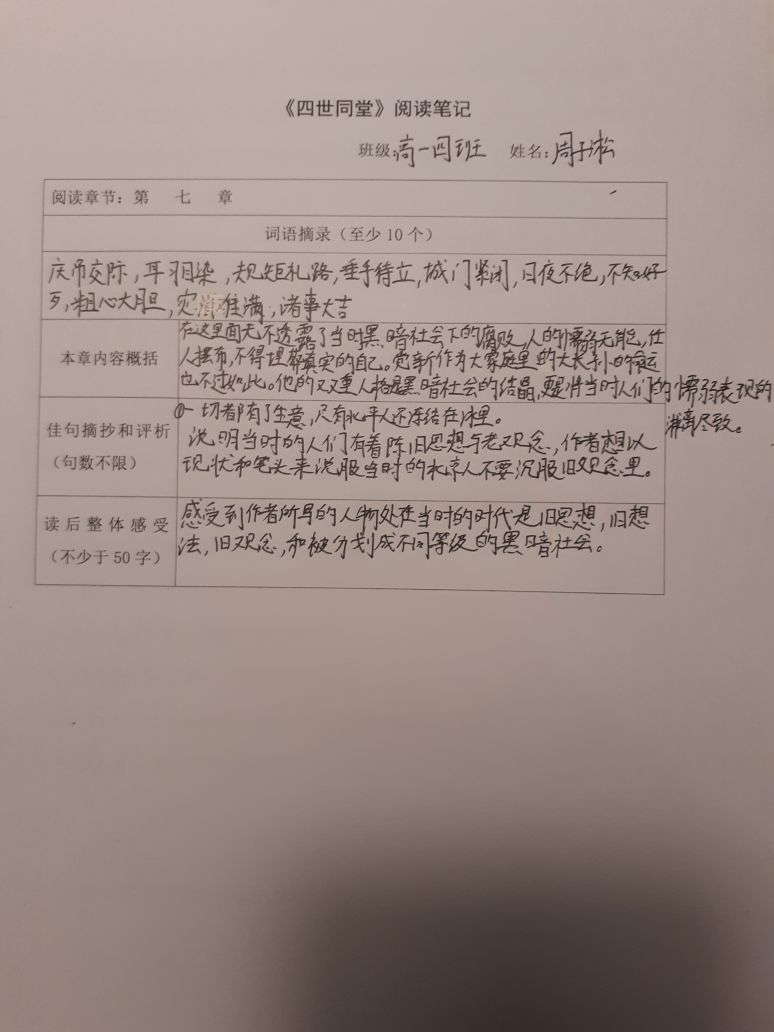 《四世同堂》阅读笔记
班级:高一四班 姓名:周子淞
阅读章节：第 七 章
词语摘录（至少10个）
庆吊交际，耳羽目染，规矩礼路，垂手待立，城门紧闭，日夜不绝，不知好
歹，粗心大胆，灾难住满，诸事大吉
本章内容概括
在这里面无不透露了当时黑暗社会下的腐败，人的懦弱无能，任
人摆布，不得埋都真实的自己。觉新作为大家庭里的大长孙的命运
也不过如此。他的双重人格是黑暗社会的结晶，更将当时人们的懦弱表现的
淋漓尽致。
佳句摘抄和评析
（句数不限）
①一切都有了生意，只有北平人还冻结在冰里。
说明当时的人们有着陈旧思想与老观念，作者想以
现状和笔头来说服当时的北京人不要沉服旧观念里。
读后整体感受
（不少于50字）
感受到作者所写的人物处在当时的时代是旧思想，旧想
法，旧观念，和被分划成不同等级的黑暗社会。